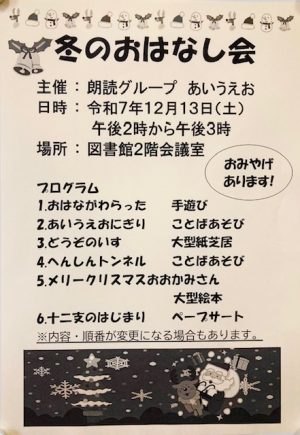 冬のおはなし会
主催 : 朗読グループ あいうえお
日時 : 令和7年12月13日(土)
午後2時から午後3時
場所 : 図書館2階会議室
おみやげ
あります!
プログラム
1.おはながわらった 手遊び
2.あいうえおにぎり ことばあそび
3.どうぞのいす 大型紙芝居
4.へんしんトンネル ことばあそび
5.メリークリスマスおおかみさん
大型絵本
6.十二支のはじまり ペープサート
※内容・順番が変更になる場合もあります。